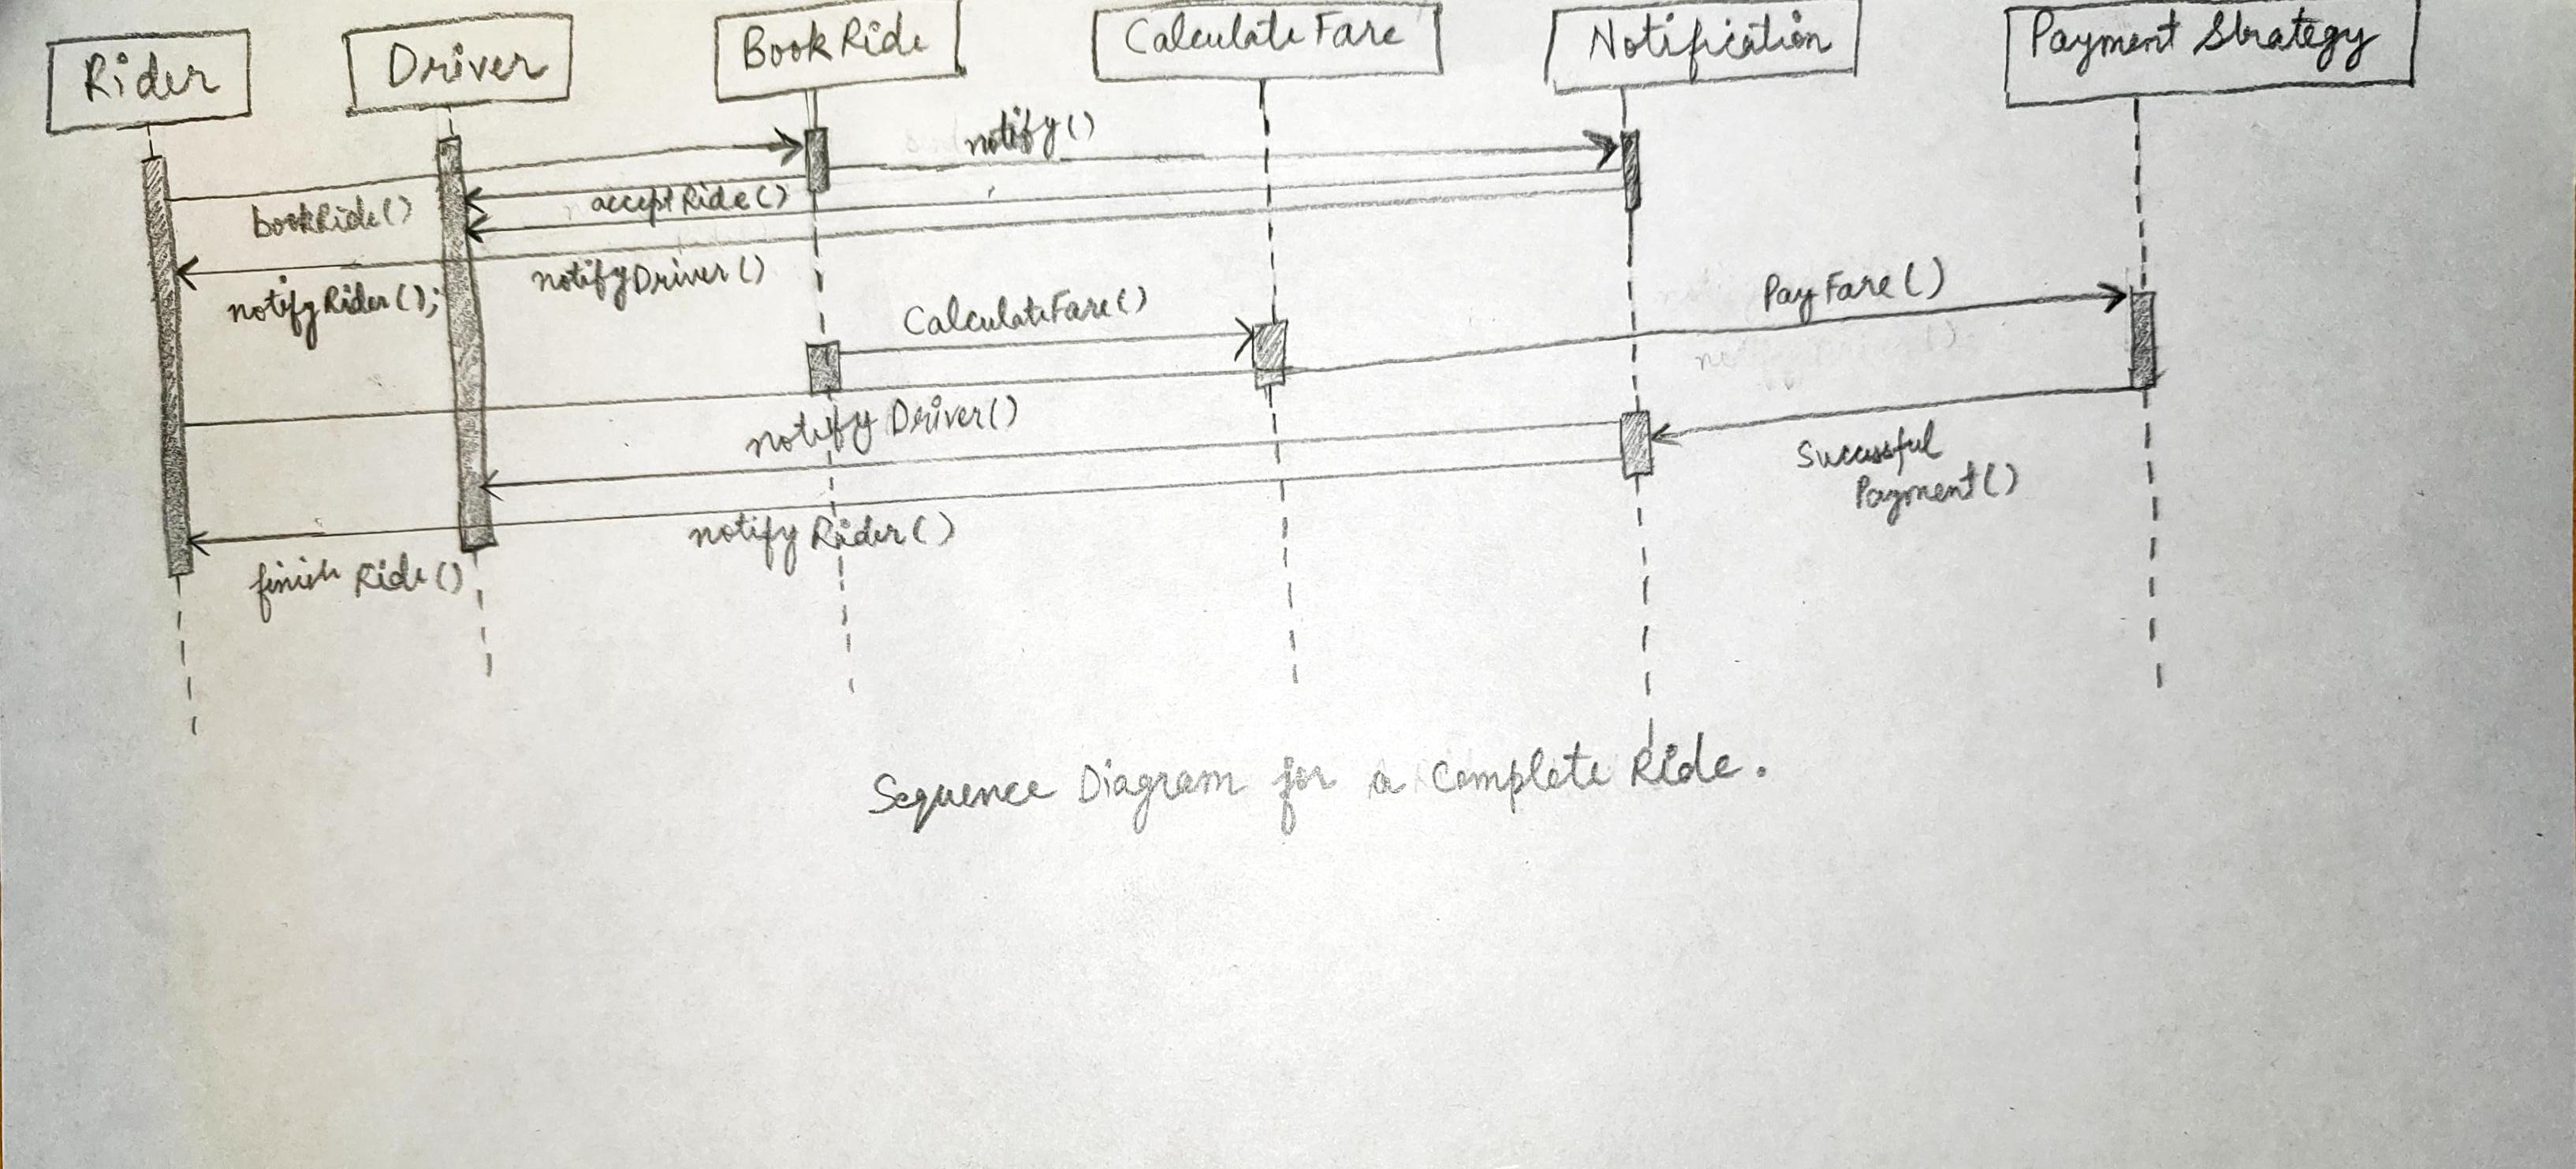 Rider
Driver
BookRide
Calculate Fare
Notification
Payment Strategy
notify()
bookRide()
acceptRide()
notifyRider();
notifyDriver()
CalculateFare()
PayFare()
notify Driver()
Successful
Payment()
notify Rider()
finish Ride()
Sequence Diagram for a Complete Ride.